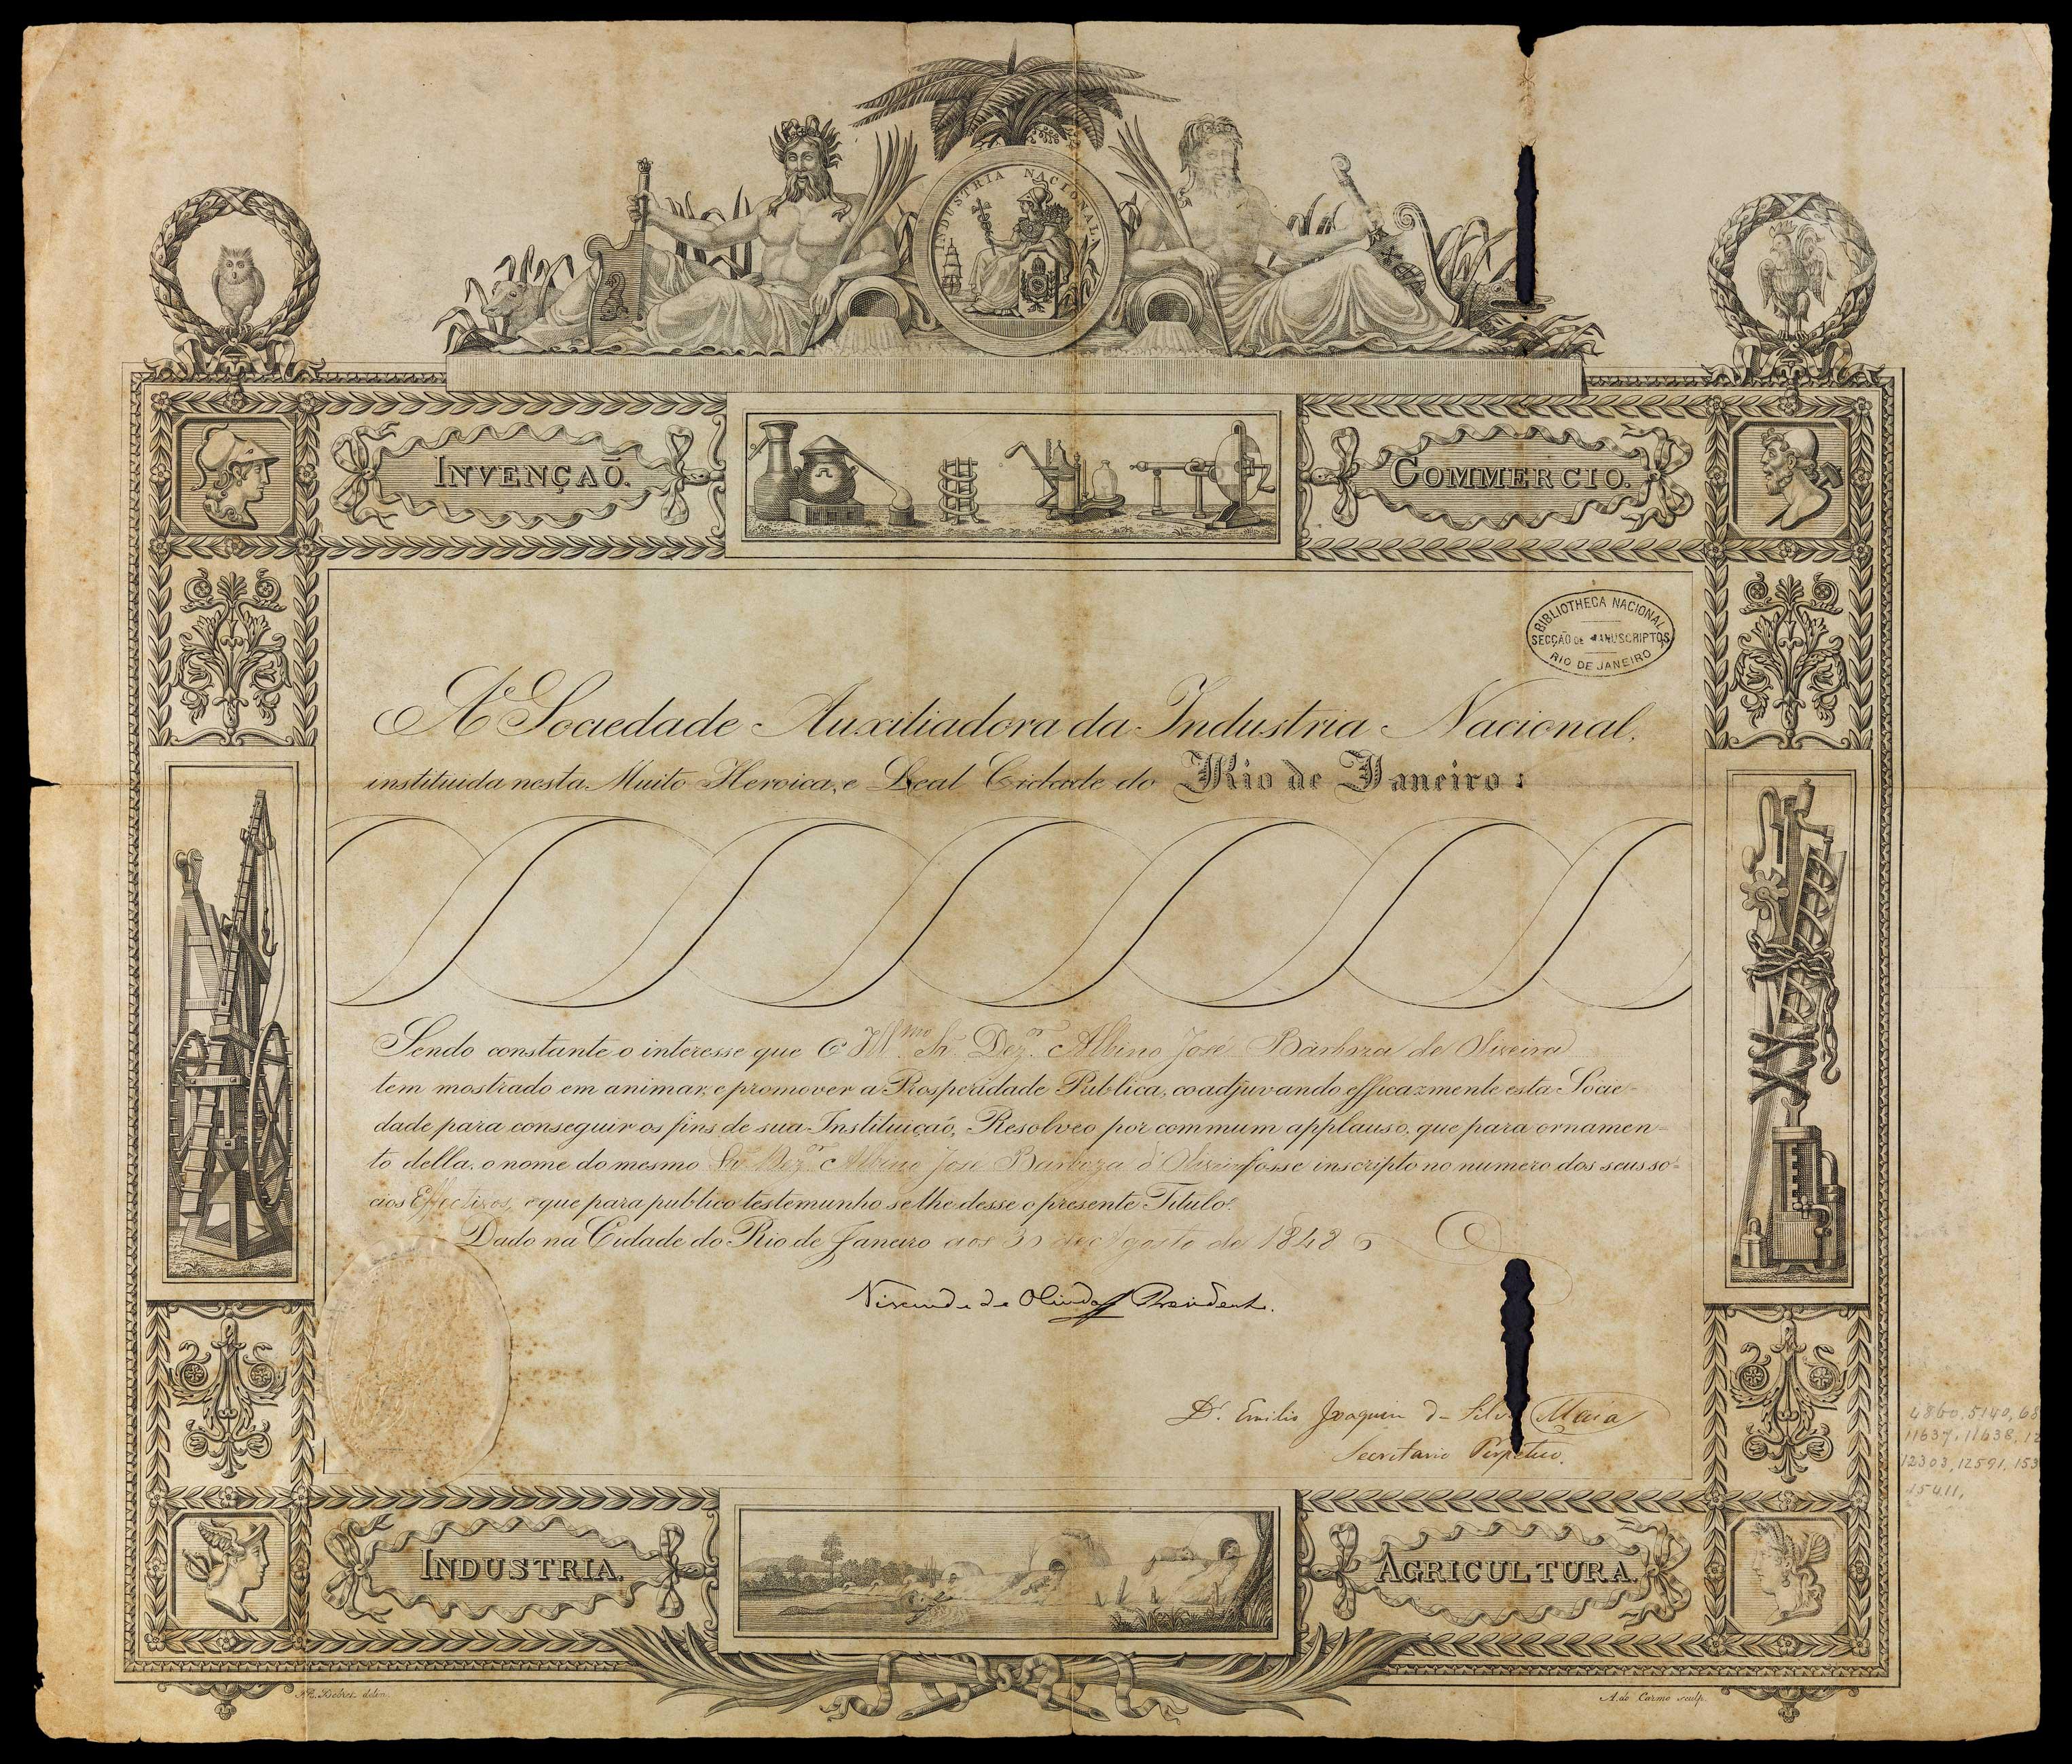 INDUSTRIA NACIONAL
INVENÇAÕ.
COMMERCIO.
BIBLIOTHECA NACIONAL
SECÇÃO DE MANUSCRIPTOS
RIO DE JANEIRO
A Sociedade Auxiliadora da Industria Nacional,
instituida nesta Muito Heroica, e Leal Cidade do Rio de Janeiro:
Sendo constante o interesse que O Ill.mo Sr. Dez.or Albino José Barboza de Oliveira
tem mostrado em animar, e promover a Prosperidade Publica, coadjuvando efficazmente esta Socie-
dade para conseguir os fins de sua Instituiçaõ, Resolveo por commum applauso, que para ornamen-
to della, o nome do mesmo Sr. Dez.or Albino José Barboza d'Oliveira fosse inscripto no numero dos seus so-
cios Effectivos, e que para publico testemunho se lhe desse o presente Titulo.
Dado na Cidade do Rio de Janeiro aos de Agosto de 1848
Visconde de Olinda Presidente.
Dr. Emilio Joaquim da Silva Maia
Secretario Perpetuo.
4860, 5140, 68
11637, 11638, 12
12303, 12591, 153
15411,
INDUSTRIA.
AGRICULTURA.
Debret delin.
A. do Carmo sculp.